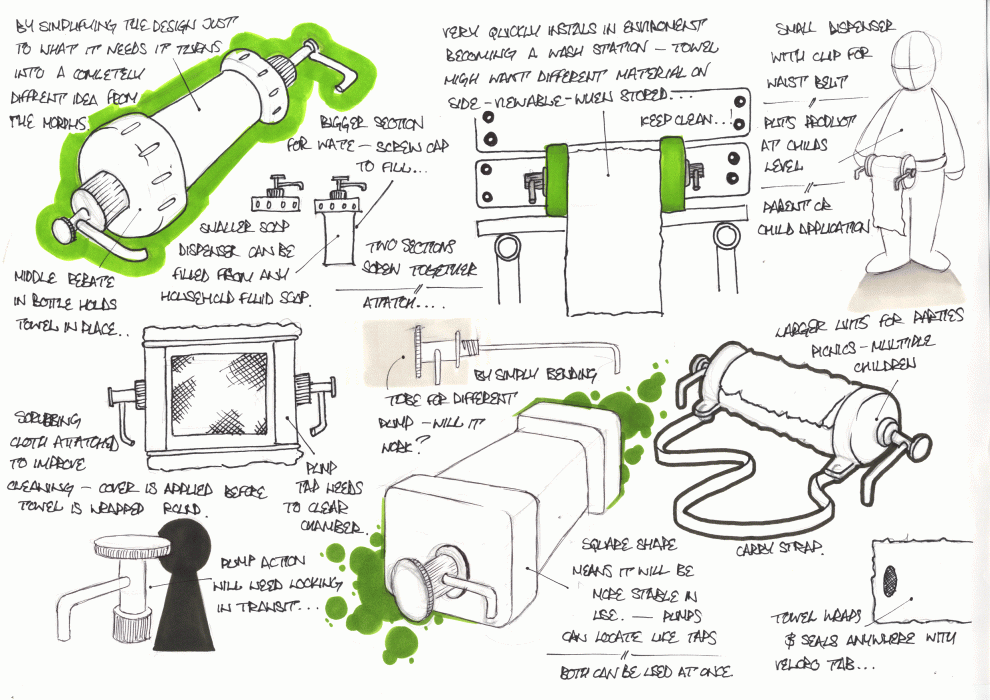 BY SIMPLIFYING THE DESIGN JUST
TO WHAT IT NEEDS IT TURNS
INTO A COMLETELY
DIFFRENT IDEA FROM
THE MORPHS.
BIGGER SECTION
FOR WATE – SCREW CAP
TO FILL...
SMALLER SOAP
DISPENSER CAN BE
FILLED FROM ANY
HOUSEHOLD FLUID SOAP.
TWO SECTIONS
SCREW TOGETHER
ATTATCH....
MIDDLE REBATE
IN BOTTLE HOLDS
TOWEL IN PLACE..
VERY QUICKLY INSTALS IN ENVIROMENT
BECOMING A WASH STATION – TOWEL
MIGH WANT DIFFERENT MATERIAL ON
SIDE – VIEWABLE – WHEN STORED...
KEEP CLEAN...!
SMALL DISPENSER
WITH CLIP FOR
WAIST BELT
PUTS PRODUCT
AT CHILDS
LEVEL
PARENT OR
CHILD APPLICATION
SCRUBBING
CLOTH ATTATCHED
TO IMPROVE
CLEANING – COVER IS APPLIED BEFORE
TOWEL IS WRAPPED ROUND.
PUMP
TAP NEEDS
TO CLEAR
CHAMBER.
BY SIMPLY BENDING
TUBE FOR DIFFERENT
PUMP – WILL IT
WORK?
LARGER UNITS FOR PARTIES
PICNICS – MULTIPLE
CHILDREN
CARRY STRAP.
PUMP ACTION
WILL NEED LOCKING
IN TRANSIT...
SQUARE SHAPE
MEANS IT WILL BE
MORE STABLE IN
USE. — PUMPS
CAN LOCATE LIKE TAPS
BOTH CAN BE USED AT ONCE.
TOWEL WRAPS
& SEALS ANYWHERE WITH
VELCRO TAB...